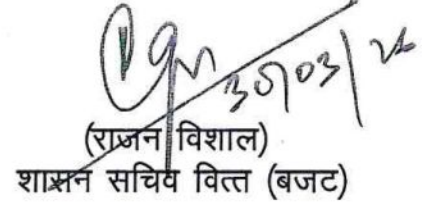 30/03/26
(राजन विशाल)
शासन सचिव वित्त (बजट)